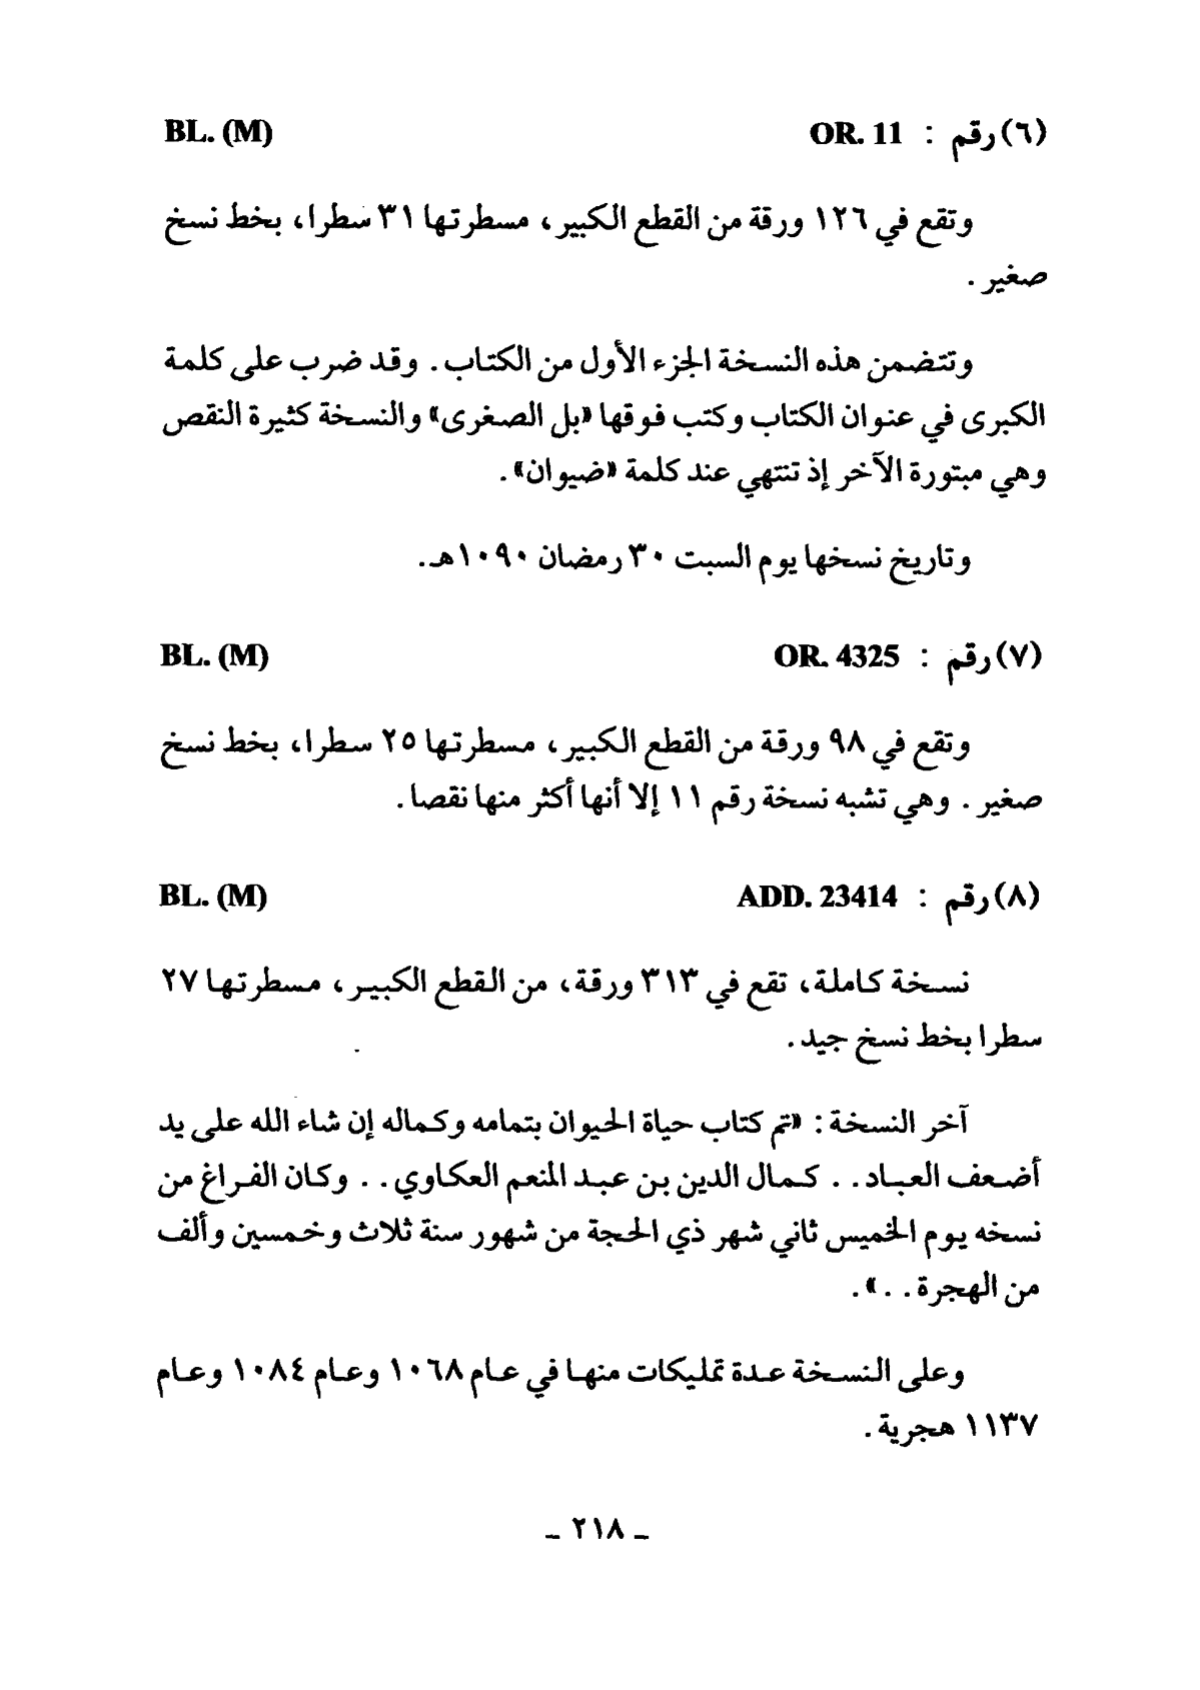 (٦) رقم : OR. 11 BL. (M)
وتقع في ١٢٦ ورقة من القطع الكبير، مسطرتها ٣١ سطرا، بخط نسخ
صغير .
وتتضمن هذه النسخة الجزء الأول من الكتاب . وقد ضرب على كلمة
الكبرى في عنوان الكتاب وكتب فوقها «بل الصغرى» والنسخة كثيرة النقص
وهي مبتورة الآخر إذ تنتهي عند كلمة «ضيوان» .
وتاريخ نسخها يوم السبت ٣٠ رمضان ١٠٩٠هـ.
(٧) رقم : OR. 4325 BL. (M)
وتقع في ٩٨ ورقة من القطع الكبير، مسطرتها ٢٥ سطرا، بخط نسخ
صغير . وهي تشبه نسخة رقم ١١ إلا أنها أكثر منها نقصا .
(٨) رقم : ADD. 23414 BL. (M)
نسخة كاملة، تقع في ٣١٣ ورقة، من القطع الكبير، مسطرتها ٢٧
سطرا بخط نسخ جيد .
آخر النسخة : «تم كتاب حياة الحيوان بتمامه وكماله إن شاء الله على يد
أضعف العباد . . كمال الدين بن عبد المنعم العكاوي . . وكان الفراغ من
نسخه يوم الخميس ثاني شهر ذي الحجة من شهور سنة ثلاث وخمسين وألف
من الهجرة . . » .
وعلى النسخة عدة تمليكات منها في عام ١٠٦٨ وعام ١٠٨٤ وعام
١١٣٧ هجرية .
ـ ٢١٨ ـ